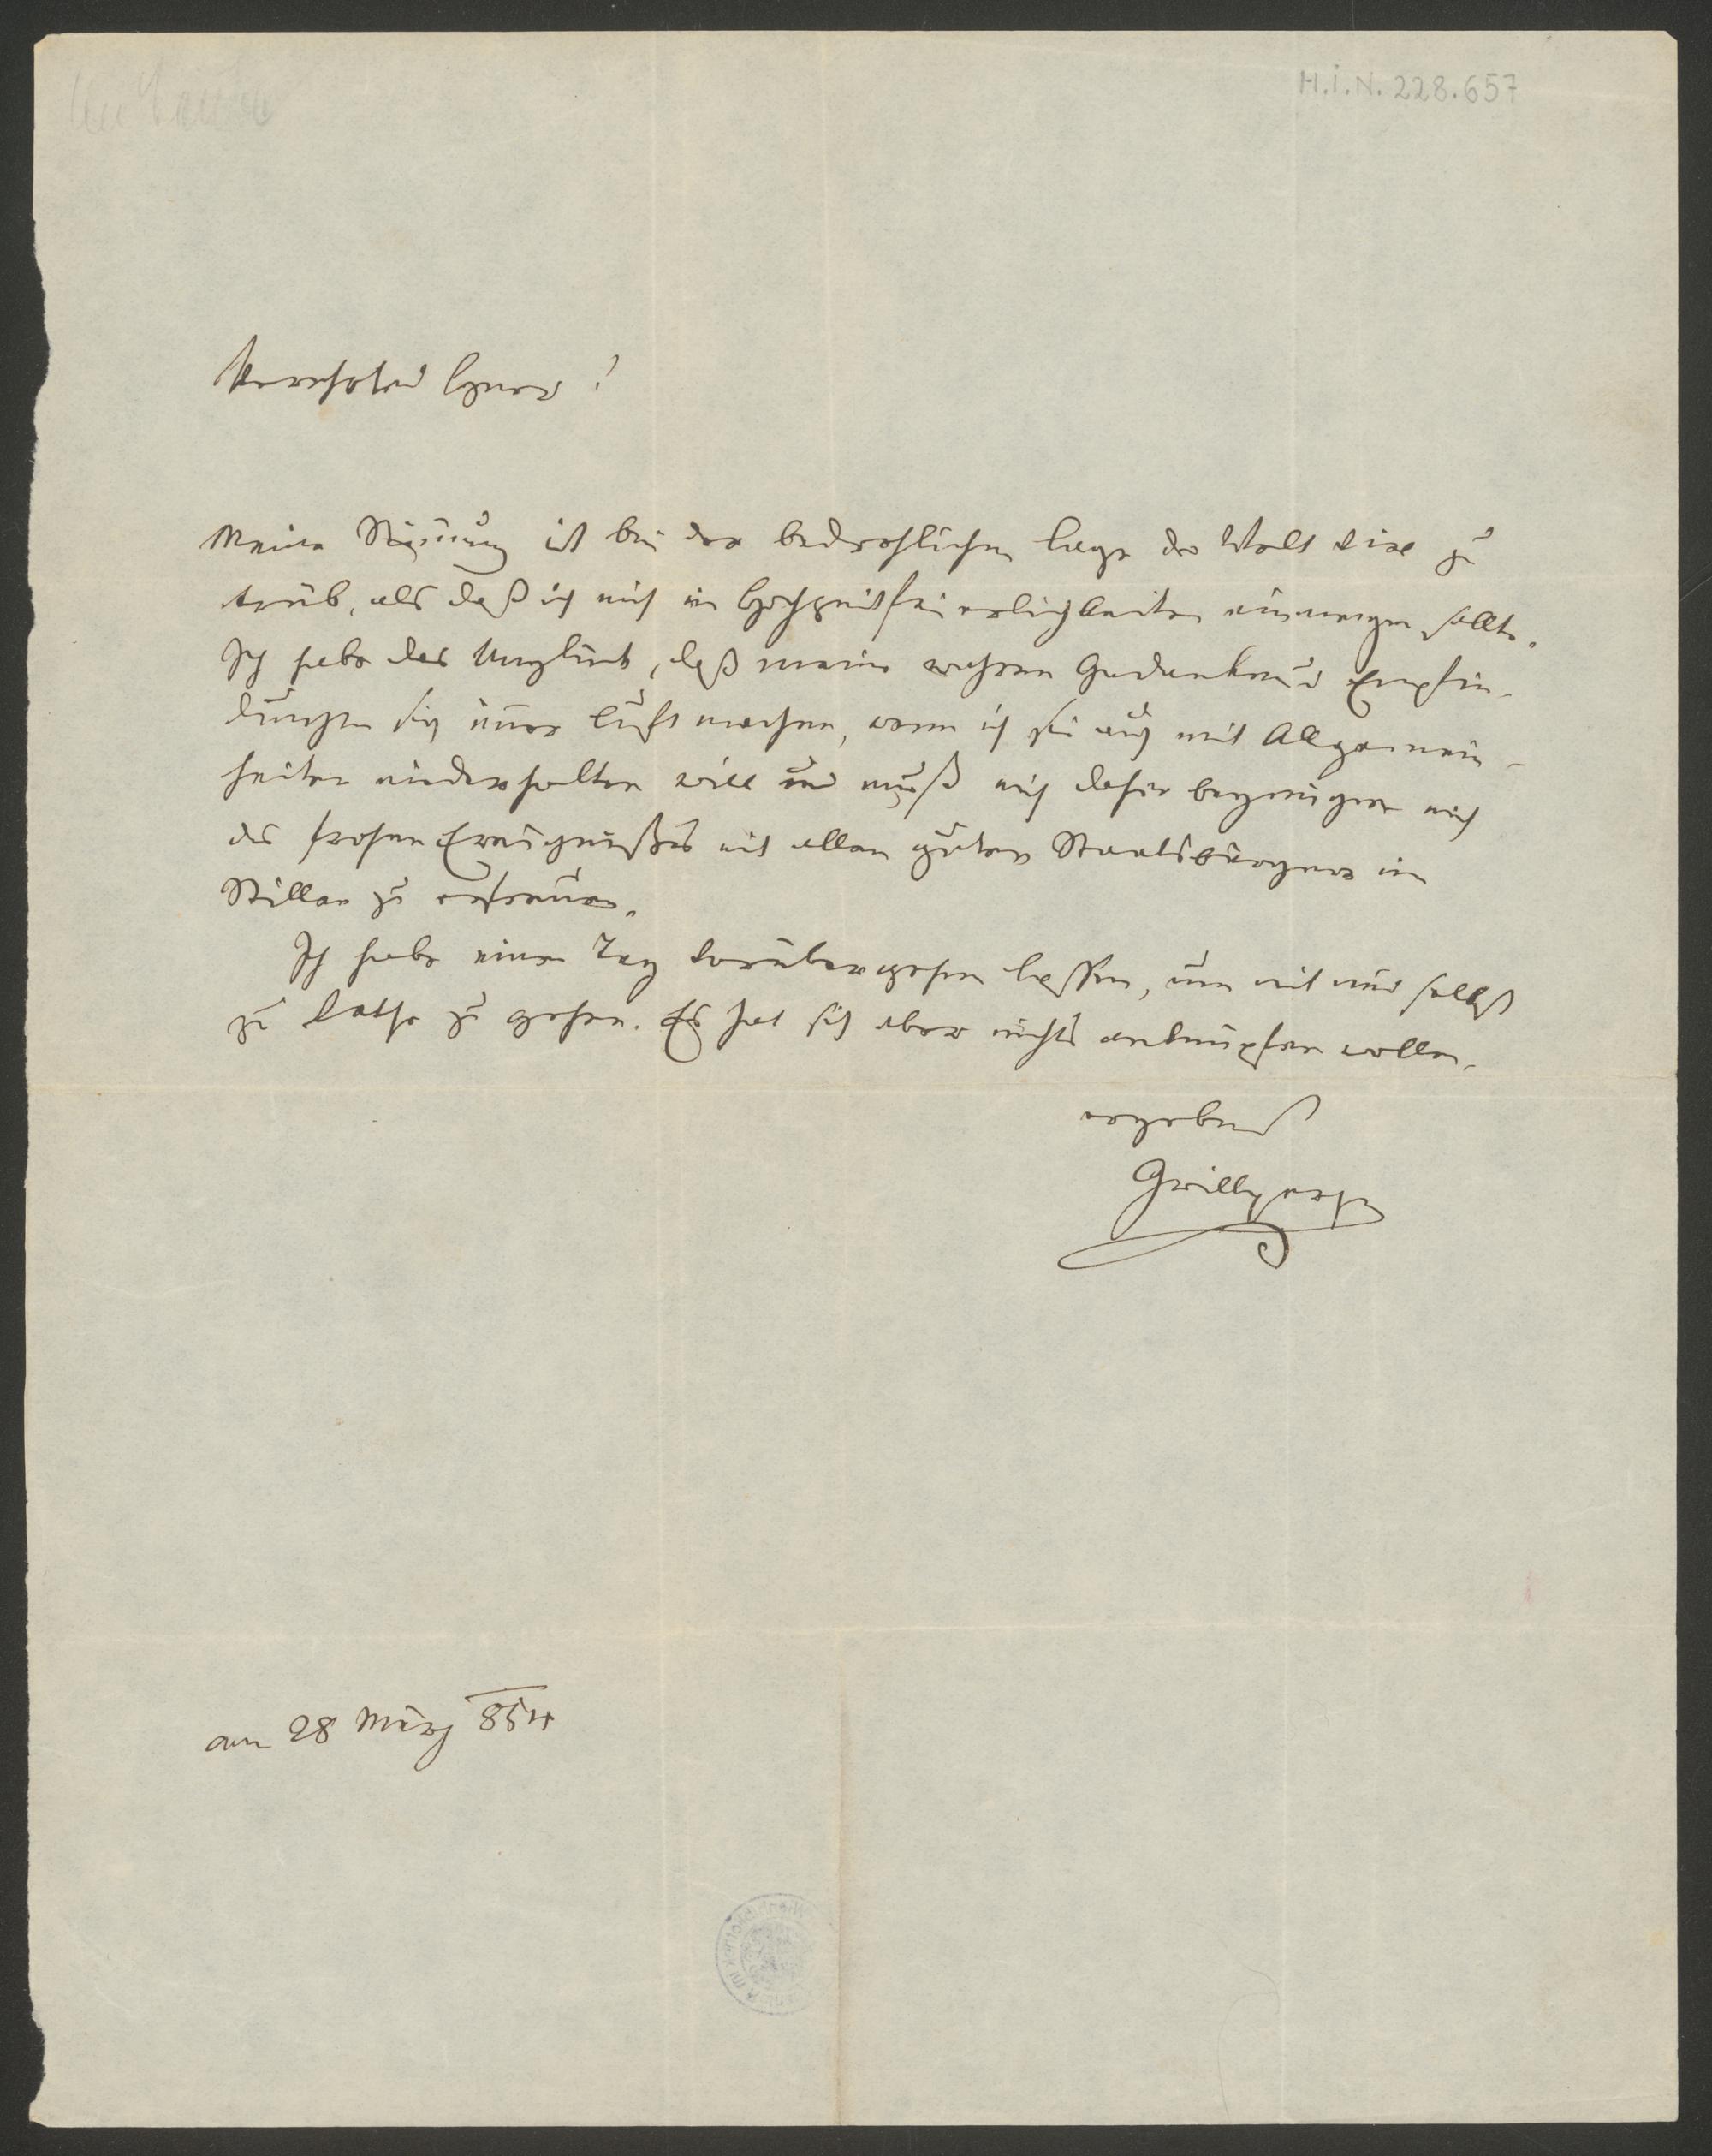 H.I.N. 228.657
Verehrter Herr!
Meine Stimmung ist bei der bedrohlichen Lage der Welt viel zu
trüb, als daß ich mich in Hochzeitfeierlichkeiten einmengen sollte.
Ich habe das Unglück, daß meine wahren Gedanken u Empfin-
dungen sich immer Luft machen, wenn ich sie auch mit Allgemein-
heiten niederhalten will und muß mich daher begnügen mich
des frohen Ereignißes mit allen guten Staatsbürgern im
Stillen zu erfreuen.
Ich habe einen Tag vorübergehen lassen, um mit mir selbst
zu Rathe zu gehen. Es hat sich aber nichts anknüpfen wollen.
ergebenst
Grillparzer
am 28 März 854